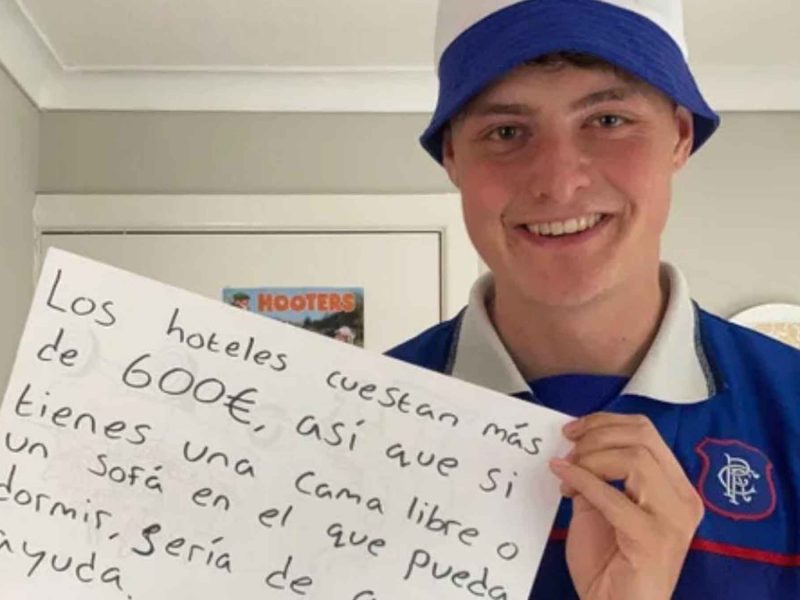 HOOTERS
Los hoteles cuestan más
de 600€, así que si
tienes una cama libre o
un sofá en el que pueda
dormir, sería de
ayuda.
RFC